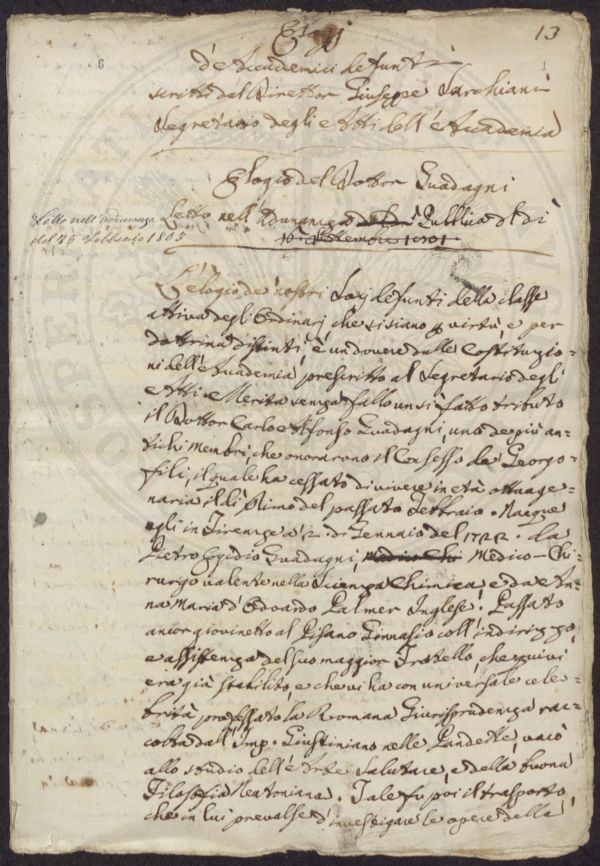 13
Elogj
d'Accademici defunti
scritti dal Direttor Giuseppe Sarchiani
Segretario degl'Atti dell'Accademia
Elogio del Dottor Guadagni
Letto nell'Adunanza
del 25 Febbraio 1803
Letto nell'Adunanza Pubblica del dì
Settembre 1801
L'elogio de' nostri Socj defunti della classe
attiva degli Ordinarj che si siano per virtù, e per
dottrina distinti, è un dovere dalle Costituzio=
ni dell'Accademia prescritto al Segretario degli
Atti. Merita senza fallo un sì fatto tributo
il Dottor Carlo Alfonso Guadagni, uno de più an=
tichi membri, che onorarono il Consesso de Georgo=
fili, il quale ha cessato di vivere in età ottuage=
naria il dì Primo del passato Febbraio. Nacque
egli in Firenze a' 2 di Gennaio del 1722. da
Pietro Egidio Guadagni, Medico-Chi=
rurgo valente nella Scienza Chimica, e da An=
na Maria d'Edoardo Palmer Inglese. Passato
ancor giovinetto al Pisano Ginnasio coll'indirizzo,
e assistenza del suo maggior Fratello, che quivi
era già stabilito, e che vi ha con universale cele=
brità professato la Romana Giurisprudenza rac=
colta dall'Imp. Giustiniano nelle Pandette, vacò
allo studio dell'Arte Salutare, e della buona
Filosofia Neutoniana. Tale fu poi il trasporto,
che in lui prevalse d'investigare le opere della